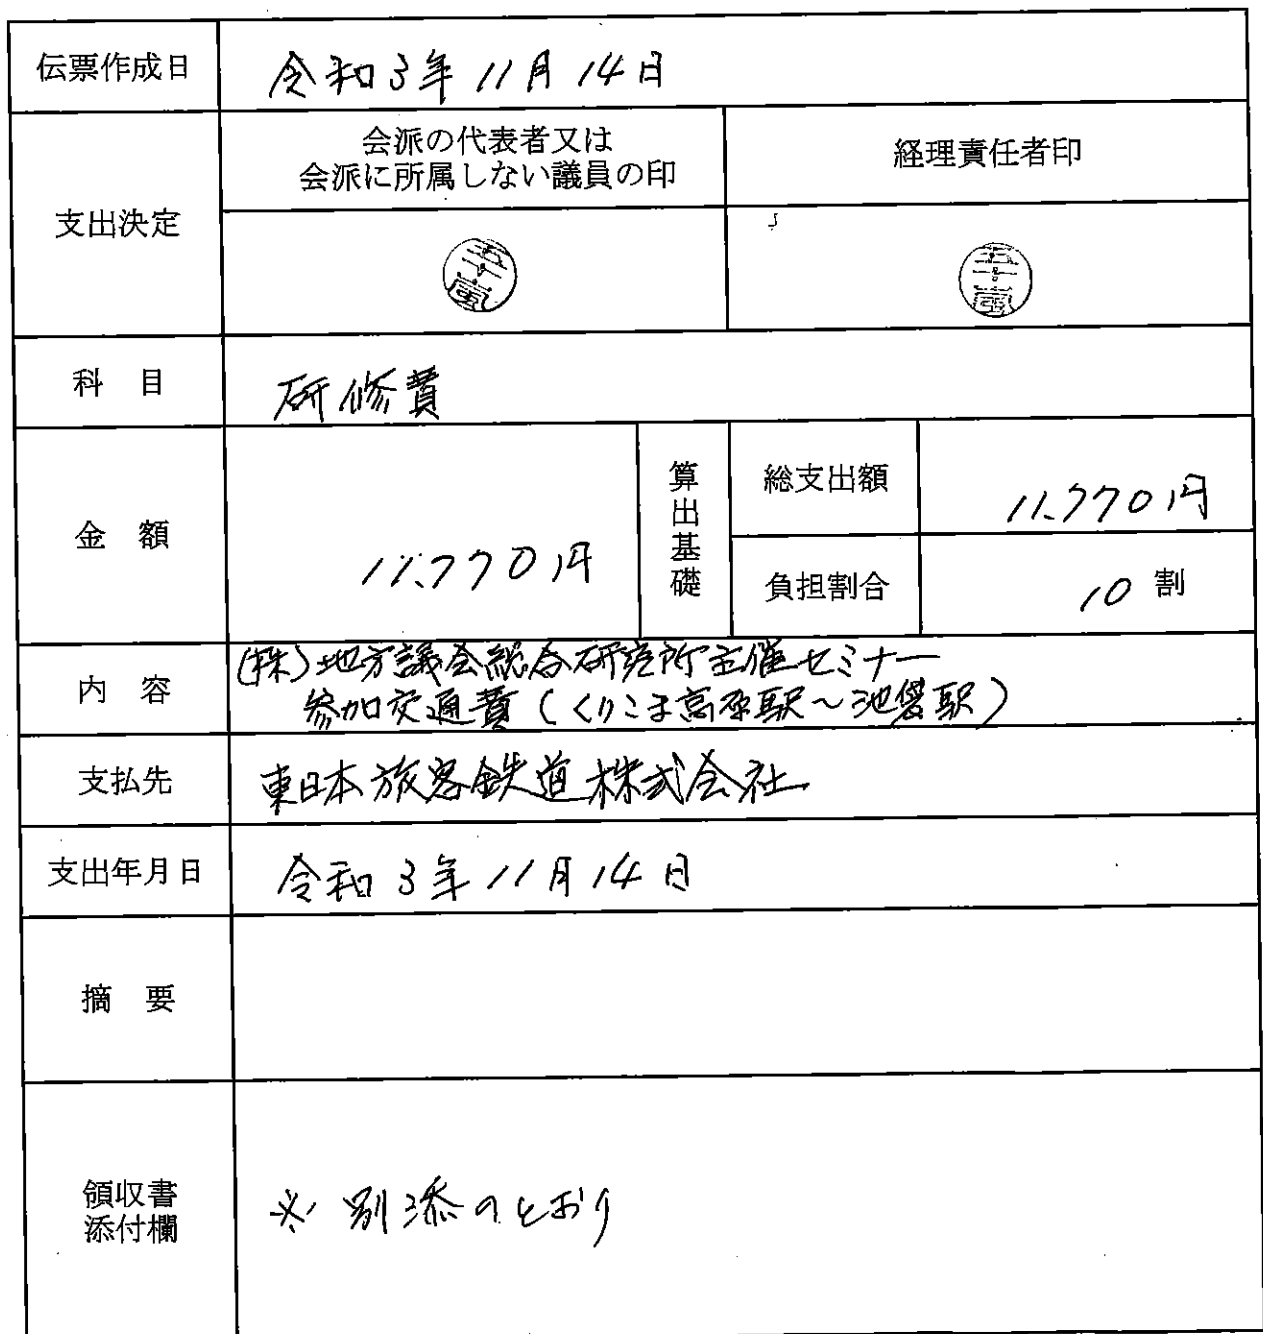 伝票作成日 令和3年11月14日
支出決定
会派の代表者又は
会派に所属しない議員の印
経理責任者印
五十嵐
五十嵐
科 目 研修費
金 額 11,770円
算出基礎
総支出額 11,770円
負担割合 10 割
内 容
(株)地方議会総合研究所主催セミナー
参加交通費(くりこま高原駅~池袋駅)
支払先 東日本旅客鉄道株式会社
支出年月日 令和3年11月14日
摘 要
領収書
添付欄
※ 別添のとおり